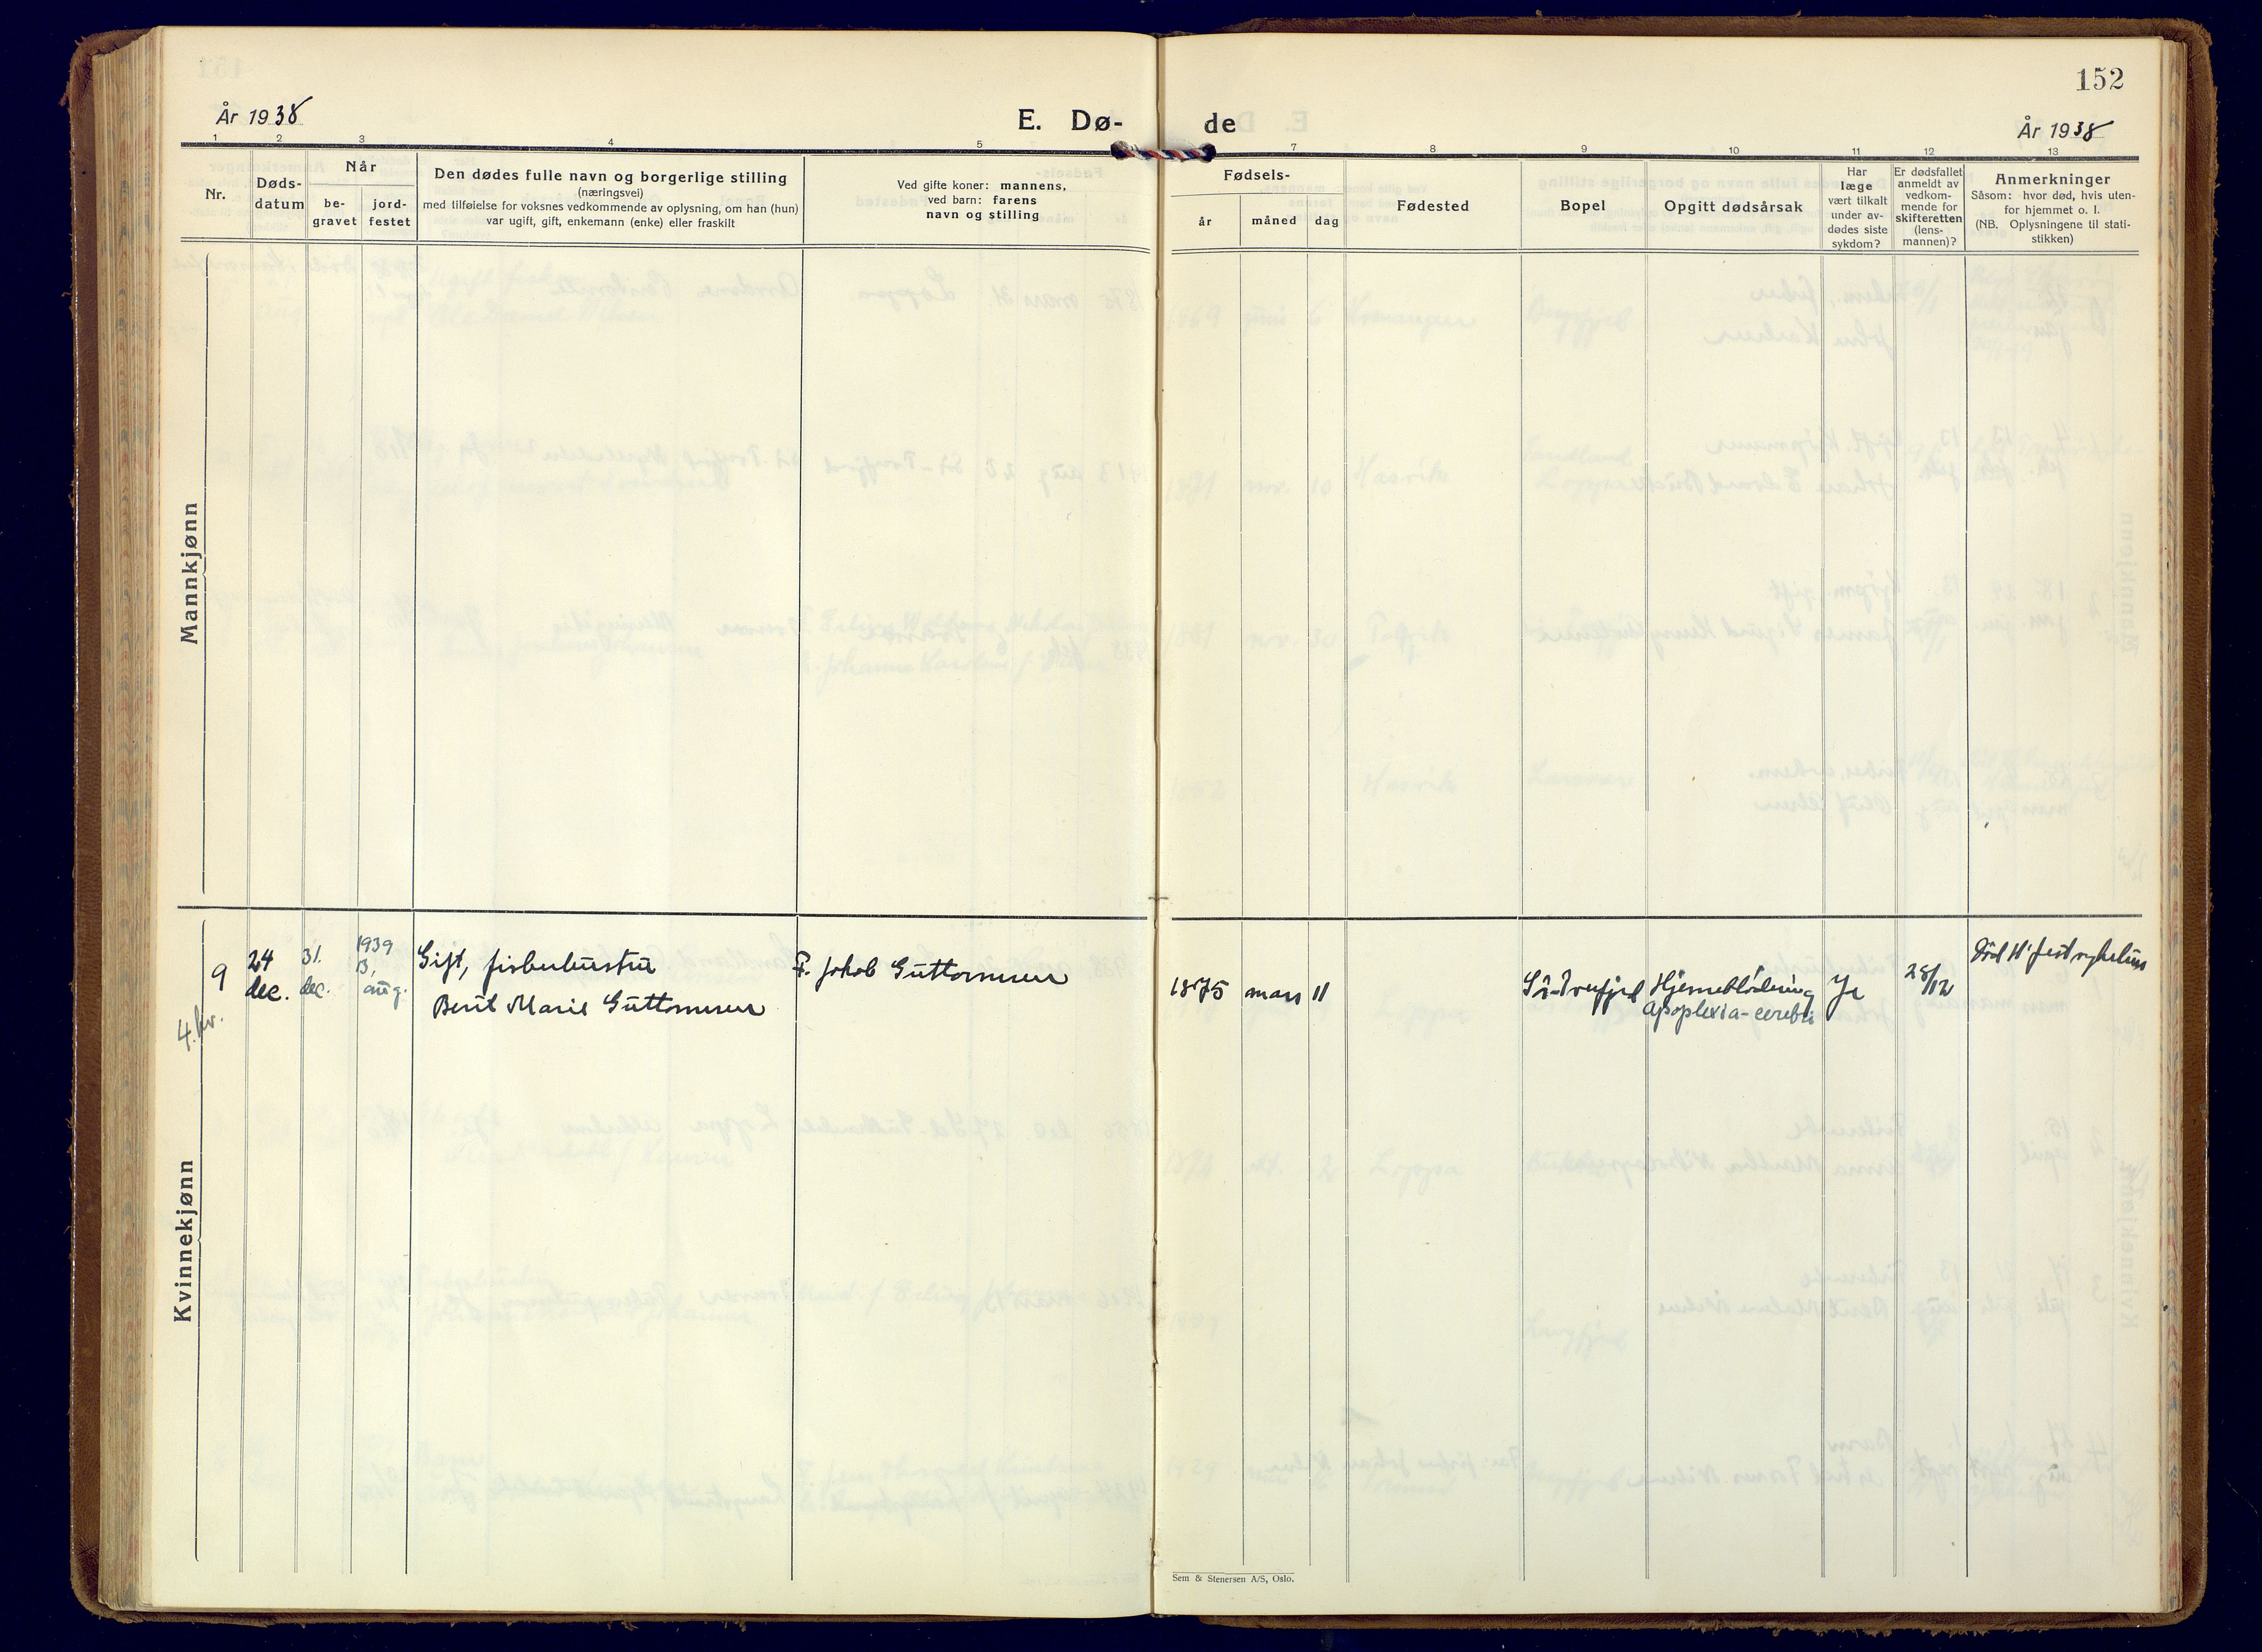 152
År 1938
E. Dø-
de
År 1938
1 2 3 4 5 7 8 9 10 11 12 13
Nr.
Døds-
datum
Når
be-
gravet
jord-
festet
Den dødes fulle navn og borgerlige stilling
(næringsvei)
med tilføielse for voksnes vedkommende av oplysning, om han (hun)
var ugift, gift, enkemann (enke) eller fraskilt
Ved gifte koner: mannens,
ved barn: farens
navn og stilling
Fødsels-
år
måned
dag
Fødested
Bopel
Opgitt dødsårsak
Har
læge
vært tilkalt
under av-
dødes siste
sykdom?
Er dødsfallet
anmeldt av
vedkom-
mende for
skifteretten
(lens-
mannen)?
Anmerkninger
Såsom: hvor død, hvis uten-
for hjemmet o. l.
(NB. Oplysningene til stati-
stikken)
Mannkjønn
Kvinnekjønn
9
4. kv.
24
dec.
31.
dec.
1939
13,
aug.
Gift, fiskerhustru
Berit Marie Guttormsen
F. Jakob Guttormsen
1875
mars
11
Hjerneblödning
Apoplexia-cerebri
Ja
28/12
Död H'fest sykehus
Sem & Stenersen A/S, Oslo.